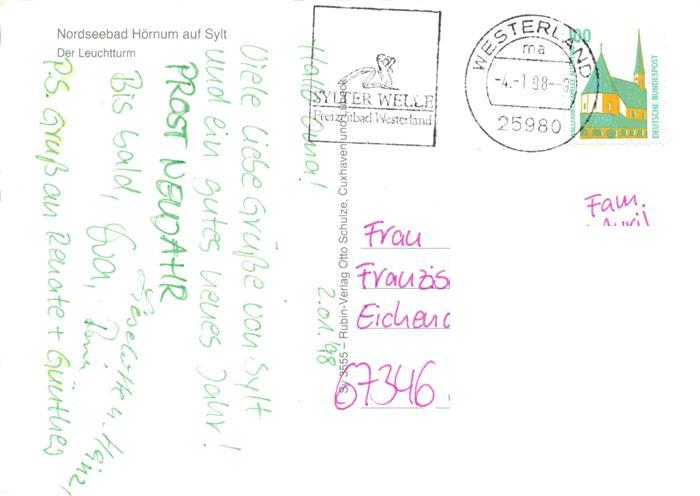 Nordseebad Hörnum auf Sylt
Der Leuchtturm
Hallo Oma!
2.01.98
Viele liebe Grüße von Sylt
und ein gutes neues Jahr!
PROST NEUJAHR
Bis bald, Eva,
Liselotte u. Heinz,
P.S. Gruß an Renate + Günther
SYLTER WELLE
Freizeitbad Westerland
WESTERLAND
ma
-4.-1.98--
25980
100
DEUTSCHE BUNDESPOST
Sy 3555 – Rubin-Verlag Otto Schulze, Cuxhaven und
Fam.
Frau
Franzis
Eichen
67346